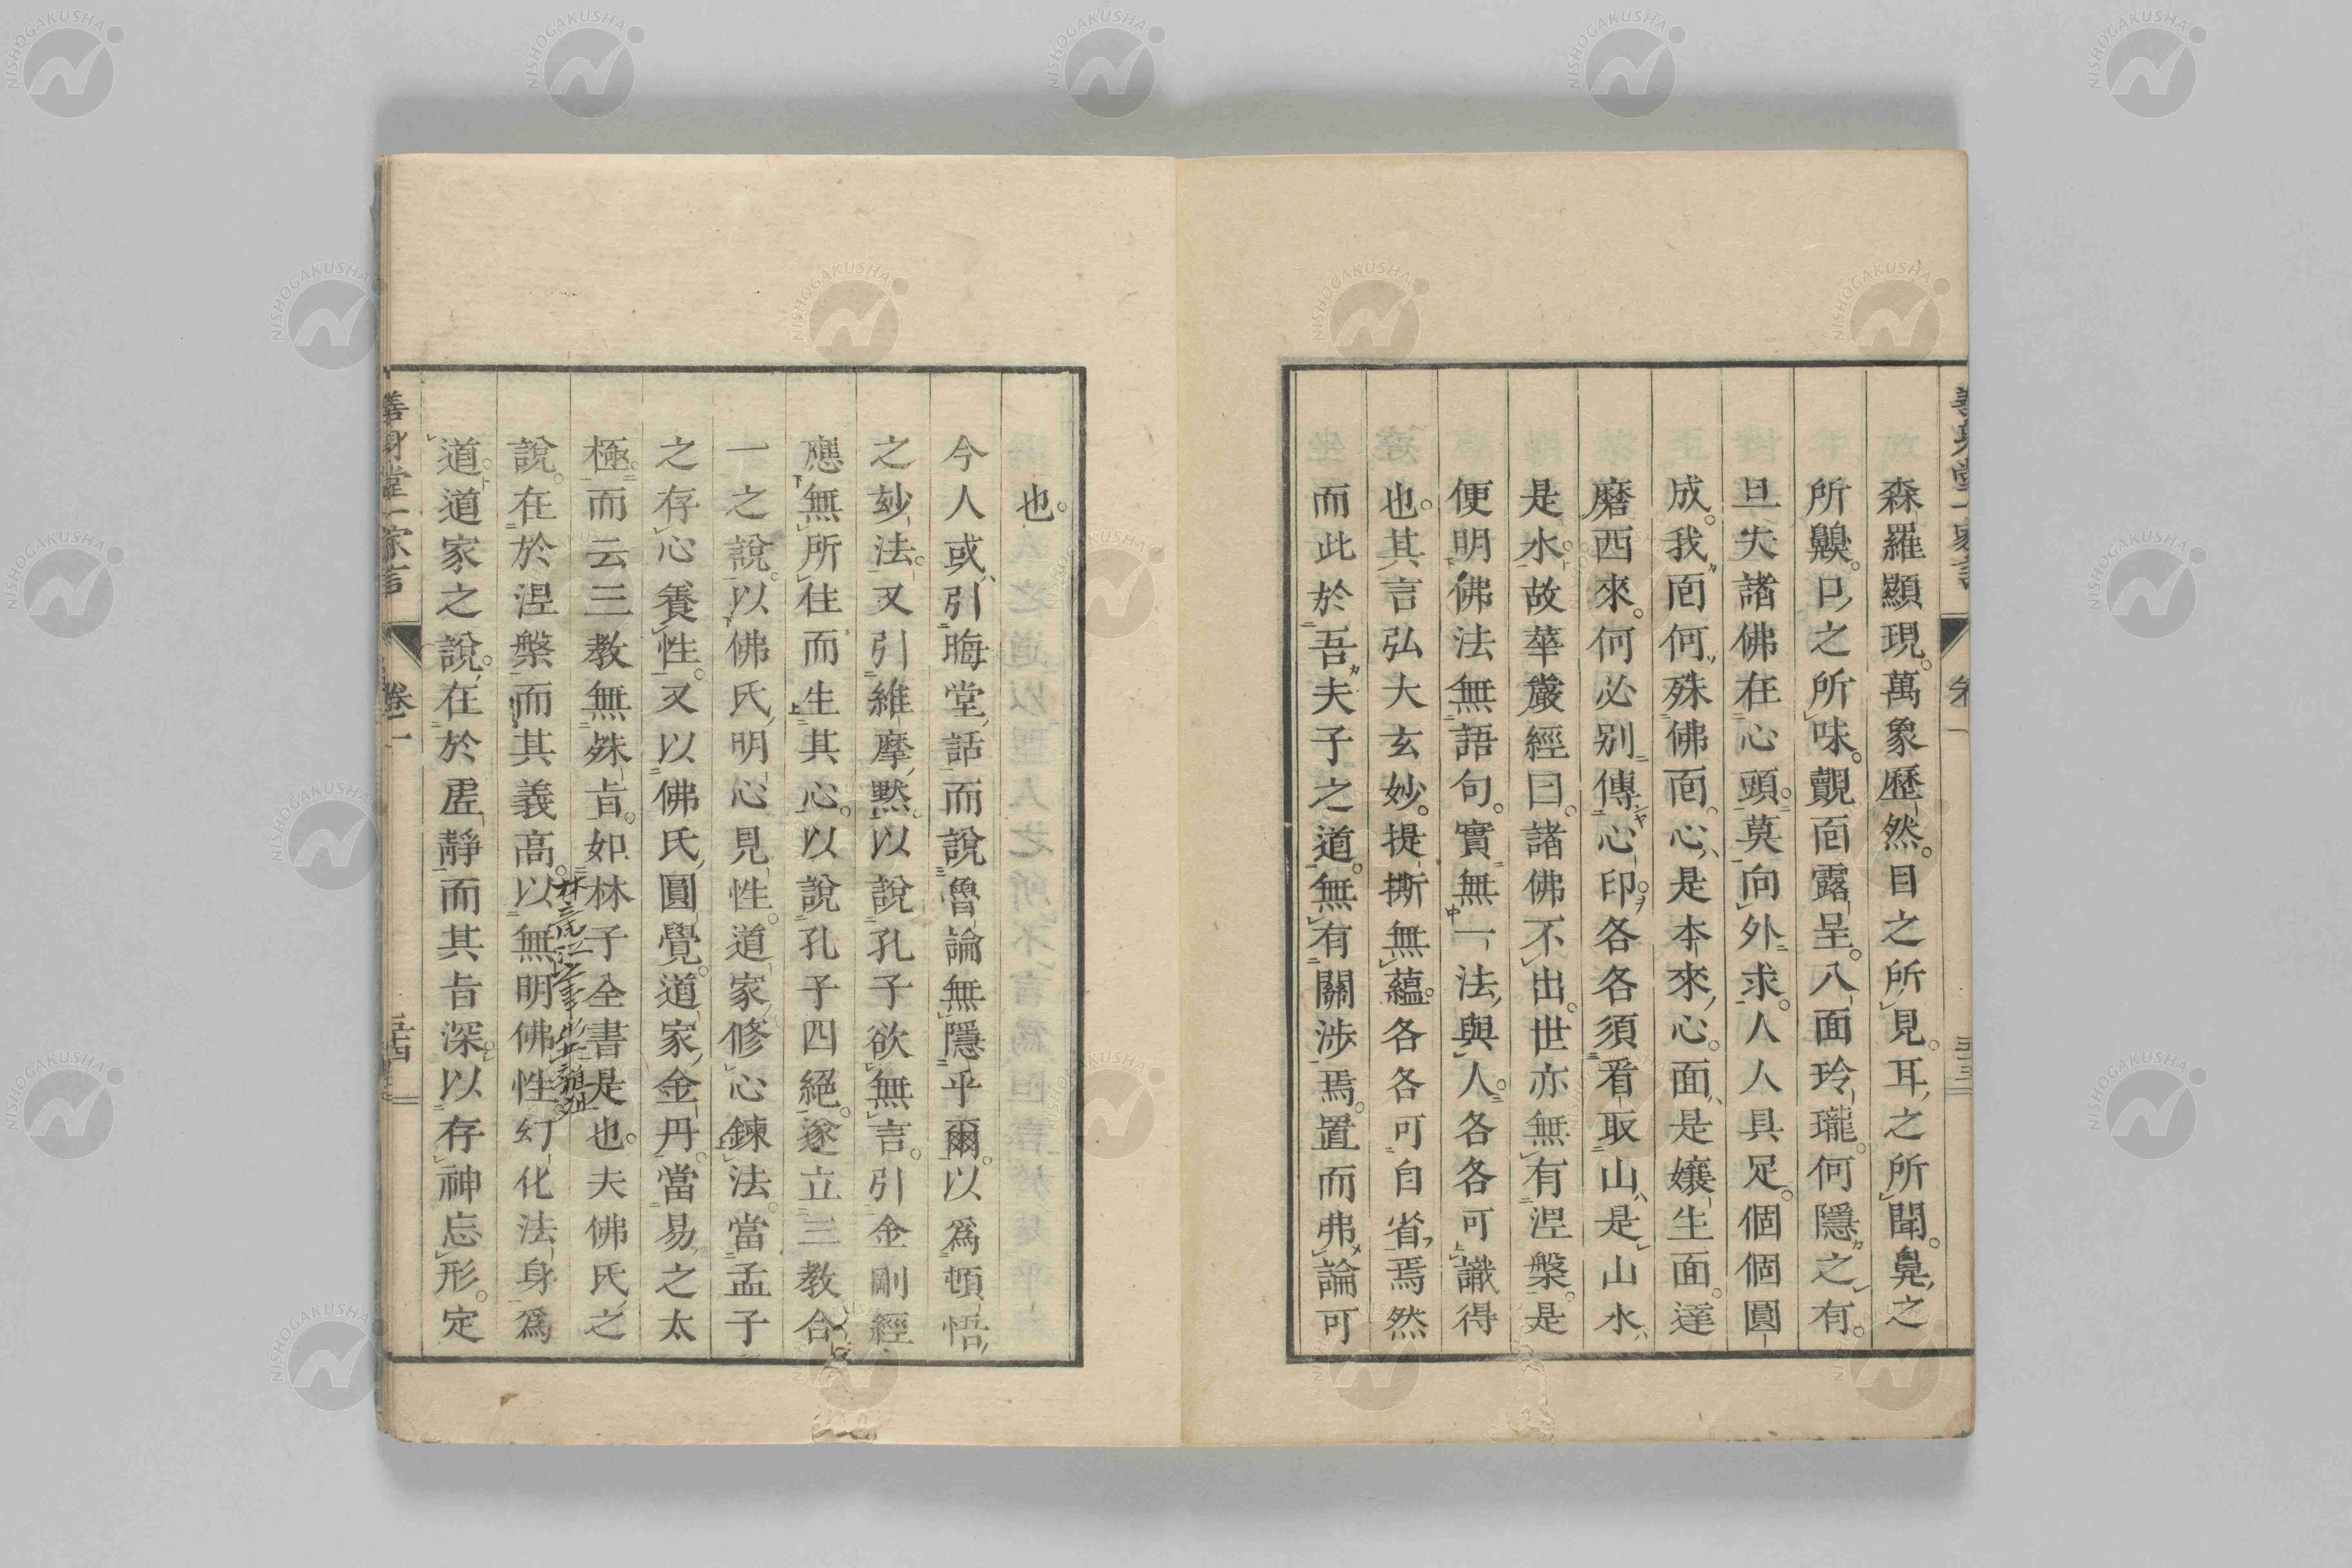 森羅顯現。萬象歷然。目之所見。耳之所聞。鼻之
所齅。口之所味。覿靣露呈。八面玲瓏。何隱之有。
旦夫諸佛在心頭。莫向外求。人人具足。個個圓
成。我靣何殊佛靣。心是本來心。面是孃生面。達
磨西來。何必別傳心印。各各須看取山是山水
是水。故華嚴經曰。諸佛不出世亦無有涅槃。是
便明佛法無語句。實無一法與人。各各可識得
也。其言弘大玄妙。提撕無蘊。各各可自省焉然
而此於吾夫子之道。無有關涉焉。置而弗論可
也。
今人或引晦堂話而說魯論無隱乎爾。以爲頓悟
之妙法。又引維摩默。以說孔子欲無言。引金剛經
應無所住而生其心。以說孔子四絕。遂立三教合
一之說。以佛氏明心見性。道家修心鍊法。當孟子
之存心養性。又以佛氏圓覺。道家金丹。當易之太
極。而云三教無殊旨。如林子全書是也。夫佛氏之
說。在於涅槃而其義高。以無明佛性幻化法身爲
道。道家之說。在於虛靜而其旨深。以存神忘形。定
善身堂一家言
卷一
NISHOGAKUSHA